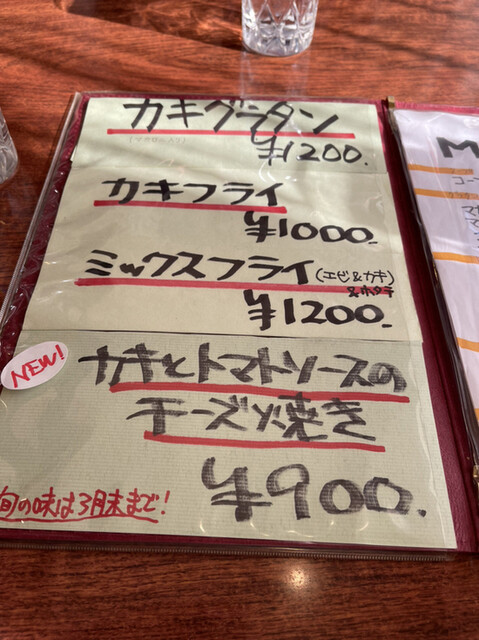 カキグラタン
(マカロニ入り)
¥1200.
カキフライ
¥1000.
ミックスフライ(エビ&カキ)
&ホタテ
¥1200.
NEW!
カキとトマトソースの
チーズ焼き
¥900.
旬の味は3月末まで!
M